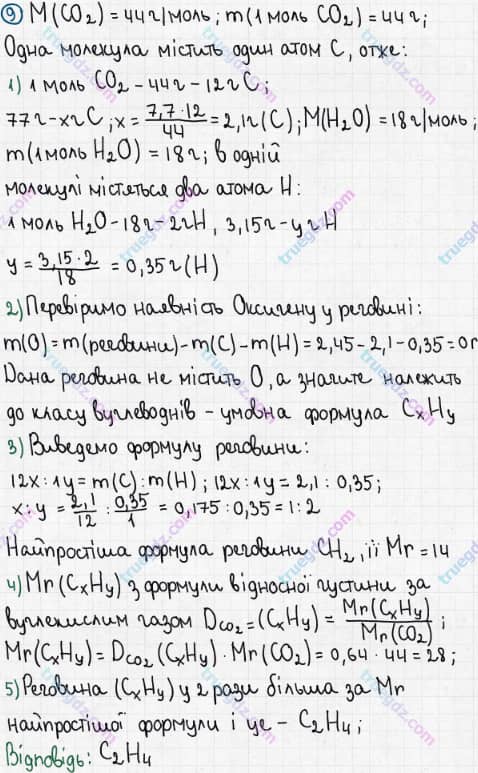 9) M(CO₂) = 44 г/моль; m(1 моль CO₂) = 44 г;
Одна молекула містить один атом C, отже:
1) 1 моль CO₂ - 44 г - 12 г C;
77 г - x г C; x = 7,7 · 12 / 44 = 2,1 г (C); M(H₂O) = 18 г/моль;
m(1 моль H₂O) = 18 г; в одній
молекулі міститься два атома H:
1 моль H₂O - 18 г - 2 г H, 3,15 г - y г H
y = 3,15 · 2 / 18 = 0,35 г (H)
2) Перевіримо наявність Оксигену у речовині:
m(O) = m(речовини) - m(C) - m(H) = 2,45 - 2,1 - 0,35 = 0 г
Дана речовина не містить O, а значить належить
до класу вуглеводнів - умовна формула CxHy
3) Виведемо формулу речовини:
12x : 1y = m(C) : m(H); 12x : 1y = 2,1 : 0,35;
x : y = 2,1 / 12 : 0,35 / 1 = 0,175 : 0,35 = 1 : 2
Найпростіша формула речовини CH₂, її Mr = 14
4) Mr(CxHy) з формули відносної густини за
вуглекислим газом DCO₂ = (CxHy) = Mr(CxHy) / Mr(CO₂);
Mr(CxHy) = DCO₂(CxHy) · Mr(CO₂) = 0,64 · 44 = 28;
5) Речовина (CxHy) у 2 рази більша за Mr
найпростішої формули і це - C₂H₄;
Відповідь: C₂H₄
truegdz.com